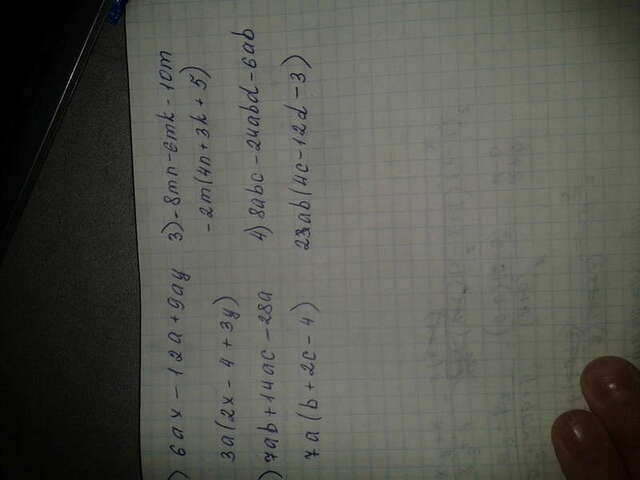 ) 6ax - 12a + 9ay
3a(2x - 4 + 3y)
) 7ab + 14ac - 28a
7a(b + 2c - 4)
3) - 8mn - 6mk - 10m
- 2m(4n + 3k + 5)
4) 8abc - 24abd - 6ab
2ab(4c - 12d - 3)